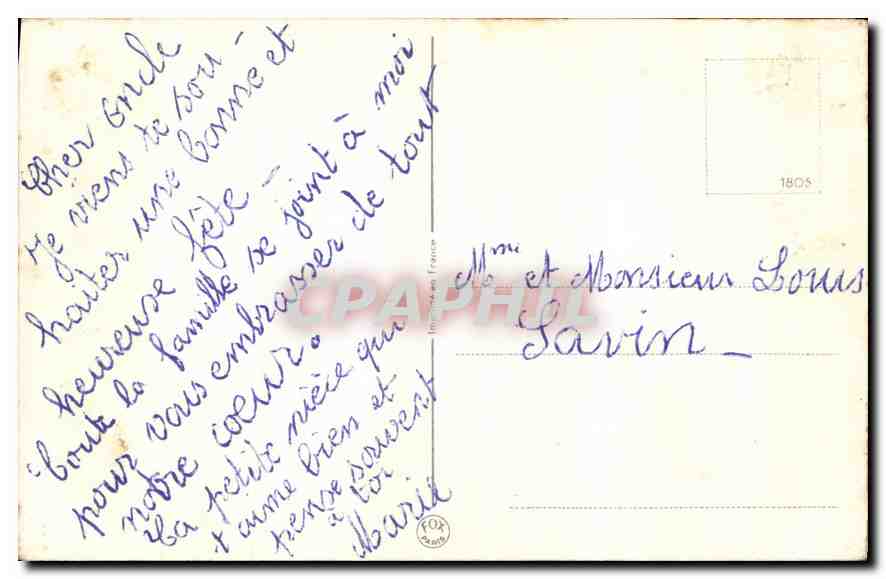 Cher Oncle
Je viens te sou-
haiter une bonne et
heureuse fête -
Toute la famille se joint à moi
pour vous embrasser de tout
notre coeur.
Ta petite nièce qui
t'aime bien et
pense souvent
à toi
Marie
Imprimé en France
FOX
PARIS
1805
Mme et Monsieur Louis
Savin_
CPAPHIL